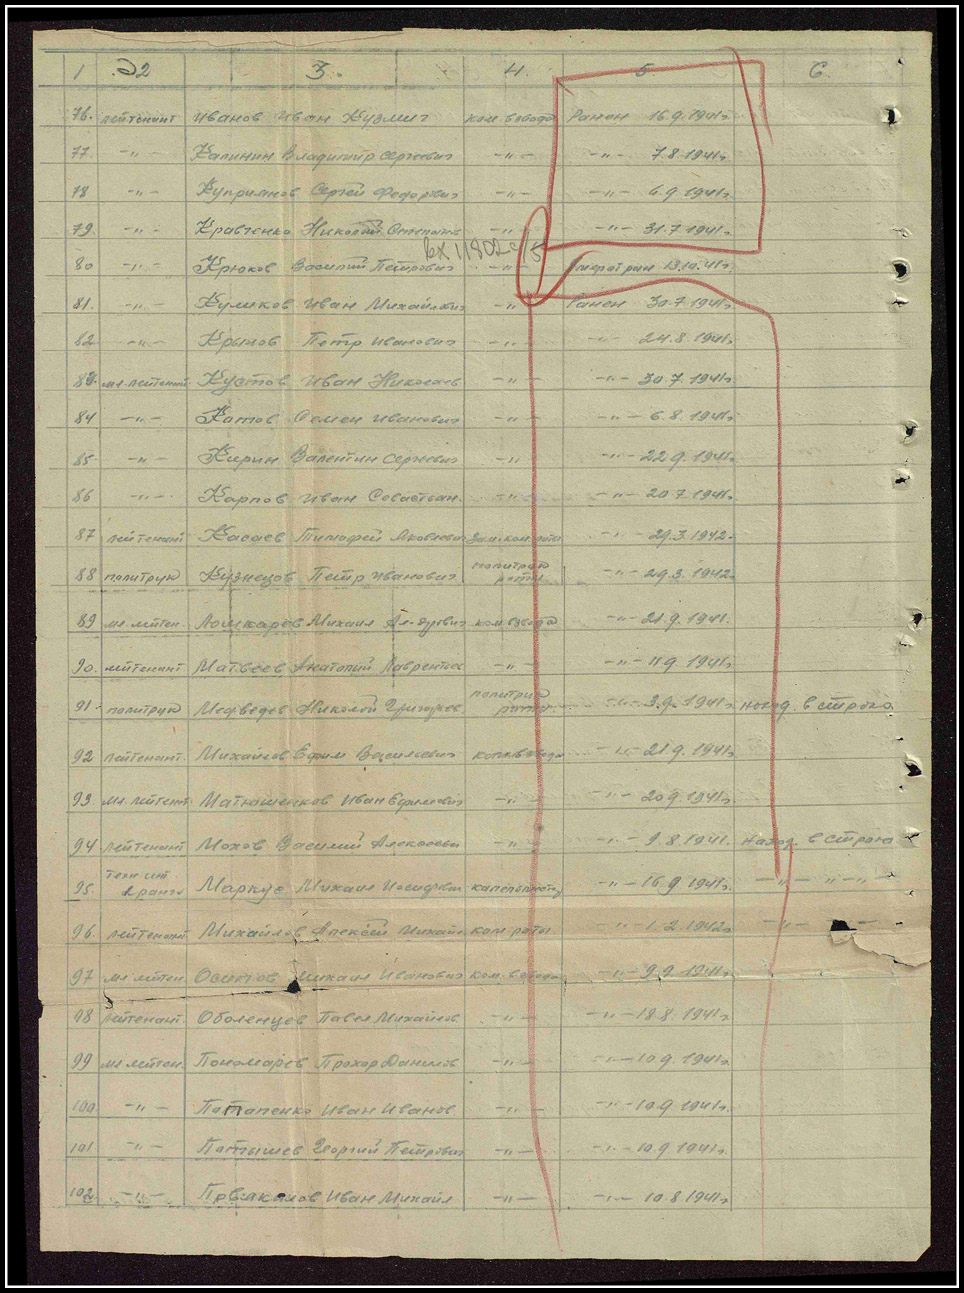 1 2 3. 4. 5 6
76. лейтенант Иванов Иван Кузмич ком. взвода Ранен 16.9.1941г.
77 -"- Калинин Владимир Сергеевич -"- -"- 7.8.1941г.
78 -"- Куприянов Сергей Федорович -"- -"- 6.9.1941г.
79 -"- Кравченко Николай Степанов -"- -"- 31.7.1941г.
вх 11802с
80 -"- Крюков Василий Петрович -"- 13.10.41г.
81. -"- Куликов Иван Михайлович -"- Ранен 30.7.1941г.
82 -"- Крылов Петр Иванович -"- -"- 24.8.1941г.
83. мл. лейтенант Кустов Иван Николаев -"- -"- 30.7.1941г.
84 -"- Катов Семен Иванович -"- -"- 6.8.1941г.
85 -"- Кирин Валентин Сергеевич -"- -"- 22.9.1941г.
86 -"- Карпов Иван Севастьян. -"- -"- 20.7.1941г.
87 лейтенант Касаев Тимофей Яковлевич Зам. ком. роты -"- 29.3.1942.
88 политрук Кузнецов Петр Иванович политрук роты -"- 29.3.1942.
89 мл. лейтен. Ломкарев Михаил ком взвода -"- 21.9.1941.
90. лейтенант Матвеев Анатолий Лаврентьев -"- -"- 11.9.1941г.
91. политрук Медведев Николай Григорьев. политрук роты -"- 3.9.1941г. наход. в строю
92 лейтенант. Михайлов Ефим Васильевич ком. взвода -"- 21.9.1941г.
93. мл. лейтент Матюшенков Иван Ефимович -"- -"- 20.9.1941г.
94 лейтенант Мохов Василий Алексеевич -"- -"- 9.8.1941г. Наход. в строю
95. техн. инт. 2 ранга Маркус Михаил Иосифович -"- 16.9.1941г. -"- -"-
96. лейтенант Михайлов Алексей Михайл ком роты -"- 1.2.1942г. -"-
97 мл. лейтен. Осипов Михаил Иванович ком. взвода -"- 9.9.1941г.
98 лейтенант. Оболенцев Павел Михайлов -"- -"- 18.8.1941г.
99 мл. лейтен. Пономарев Прохор Данилов -"- -"- 10.9.1941г.
100 -"- Потапенко Иван Иванов. -"- -"- 10.9.1941г.
101 -"- Патышев Георгий Петрович -"- -"- 10.9.1941г.
102 -"- Иван Михайл -"- -"- 10.8.1941г.